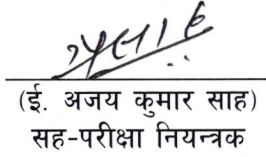 (ई. अजय कुमार साह)
सह-परीक्षा नियन्त्रक